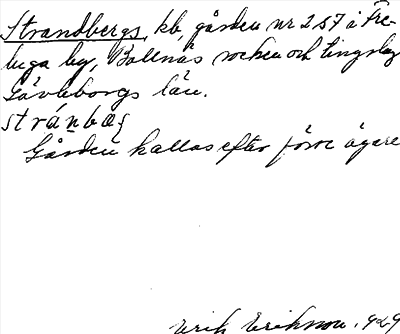 Strandbergs, kb, gården nr 257 i Fre-
luga by, Bollnäs socken och tingslag
Gävleborgs län.
stránbæs
Gården kallas efter förre ägare
Erik Eriksson. 1929